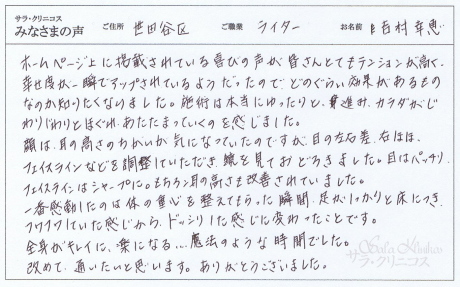 サラ・クリニコス
みなさまの声
ご住所 世田谷区 ご職業 ライター お名前 西村幸恵
ホームページ上に掲載されている喜びの声が皆さんとてもテンションが高く、
幸せ度が一瞬でアップされているようだったので、どのぐらい効果があるもの
なのか知りたくなりました。施術は本当にゆったりと、進み、カラダがじ
わりじわりとほぐれ、あたたまっていくのを感じました。
顔は、耳の高さのちがいが気になっていたのですが、目の左右差、右ほほ、
フェイスラインなどを調整していただき、鏡を見ておどろきました。目はパッチリ、
フェイスラインはシャープに。もちろん耳の高さも改善されていました。
一番感動したのは体の重心を整えてもらった瞬間、足がしっかりと床につき、
フワフワしていた感じから、ドッシリした感じに変わったことです。
全身がキレイに、楽になる…魔法のような時間でした。
改めて、通いたいと思います。ありがとうございました。
Sala Klinikos
サラ・クリニコス